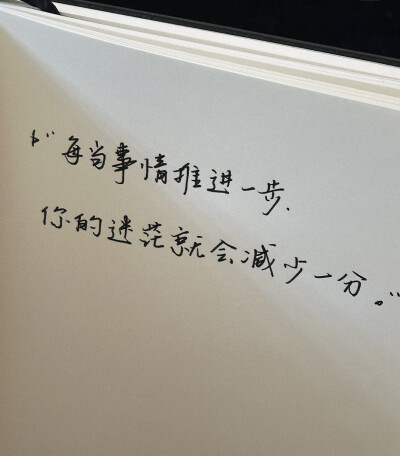 “每当事情推进一步.
你的迷茫就会减少一分。”